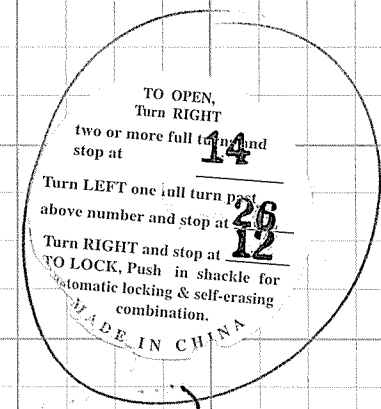 TO OPEN,
Turn RIGHT
two or more full turns and
stop at 14
Turn LEFT one full turn past
above number and stop at 26
Turn RIGHT and stop at 12
TO LOCK, Push in shackle for
automatic locking & self-erasing
combination.
MADE IN CHINA